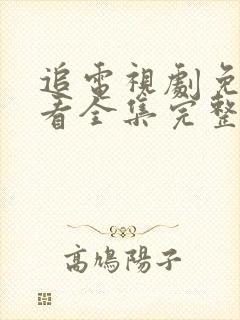 追電視劇免
看全集完整
高鳩陽子